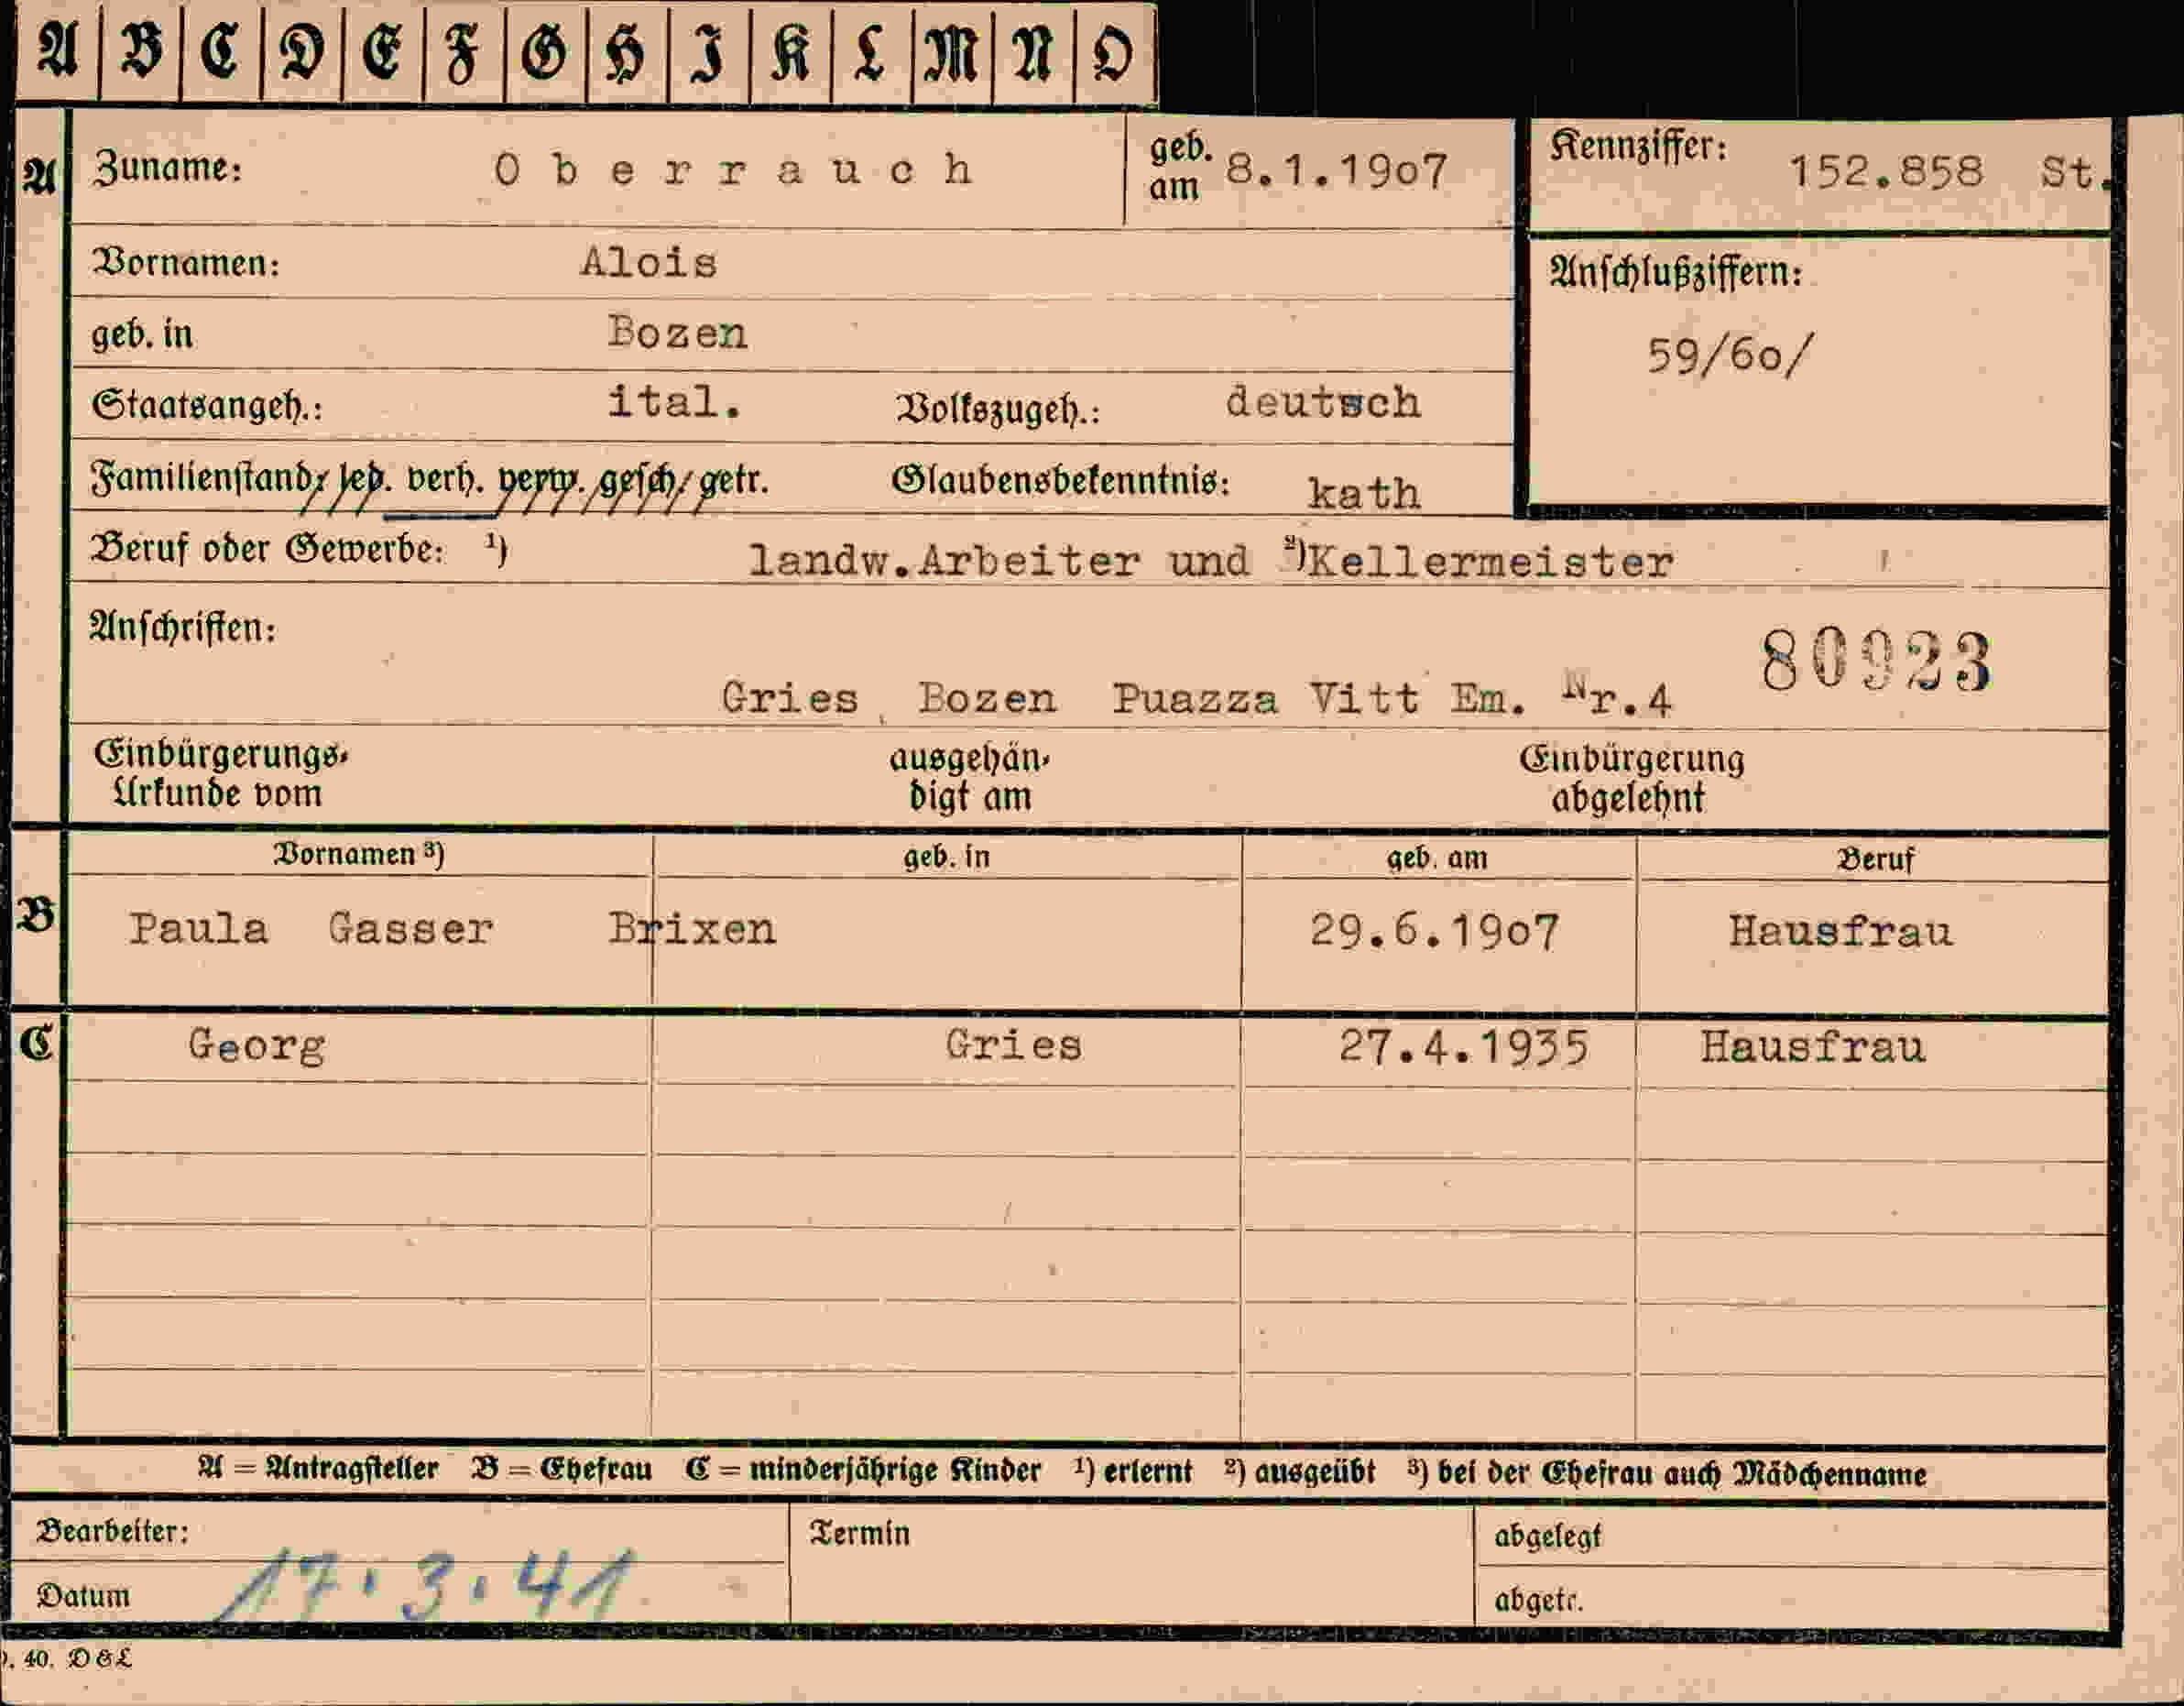 A B C D E F G H I K L M N O
A Zuname: Oberrauch geb. am 8.1.19o7 Kennziffer: 152.858 St.
Vornamen: Alois Anschlußziffern:
geb. in Bozen 59/6o/
Staatsangeh.: ital. Volkszugeh.: deutsch
Familienstand: led. verh. verw. gesch. getr. Glaubensbekenntnis: kath
Beruf oder Gewerbe: ¹) landw.Arbeiter und ²)Kellermeister
Anschriften: 80923
Gries, Bozen Puazza Vitt Em. Nr.4
Einbürgerungs- ausgehän- Einbürgerung
Urkunde vom digt am abgelehnt
Vornamen ³) geb. in geb. am Beruf
B Paula Gasser Brixen 29.6.19o7 Hausfrau
C Georg Gries 27.4.1935 Hausfrau
A = Antragsteller B = Ehefrau C = minderjährige Kinder ¹) erlernt ²) ausgeübt ³) bei der Ehefrau auch Mädchenname
Bearbeiter: Termin abgelegt
Datum 17.3.41 abgetr.
. 40. D & L